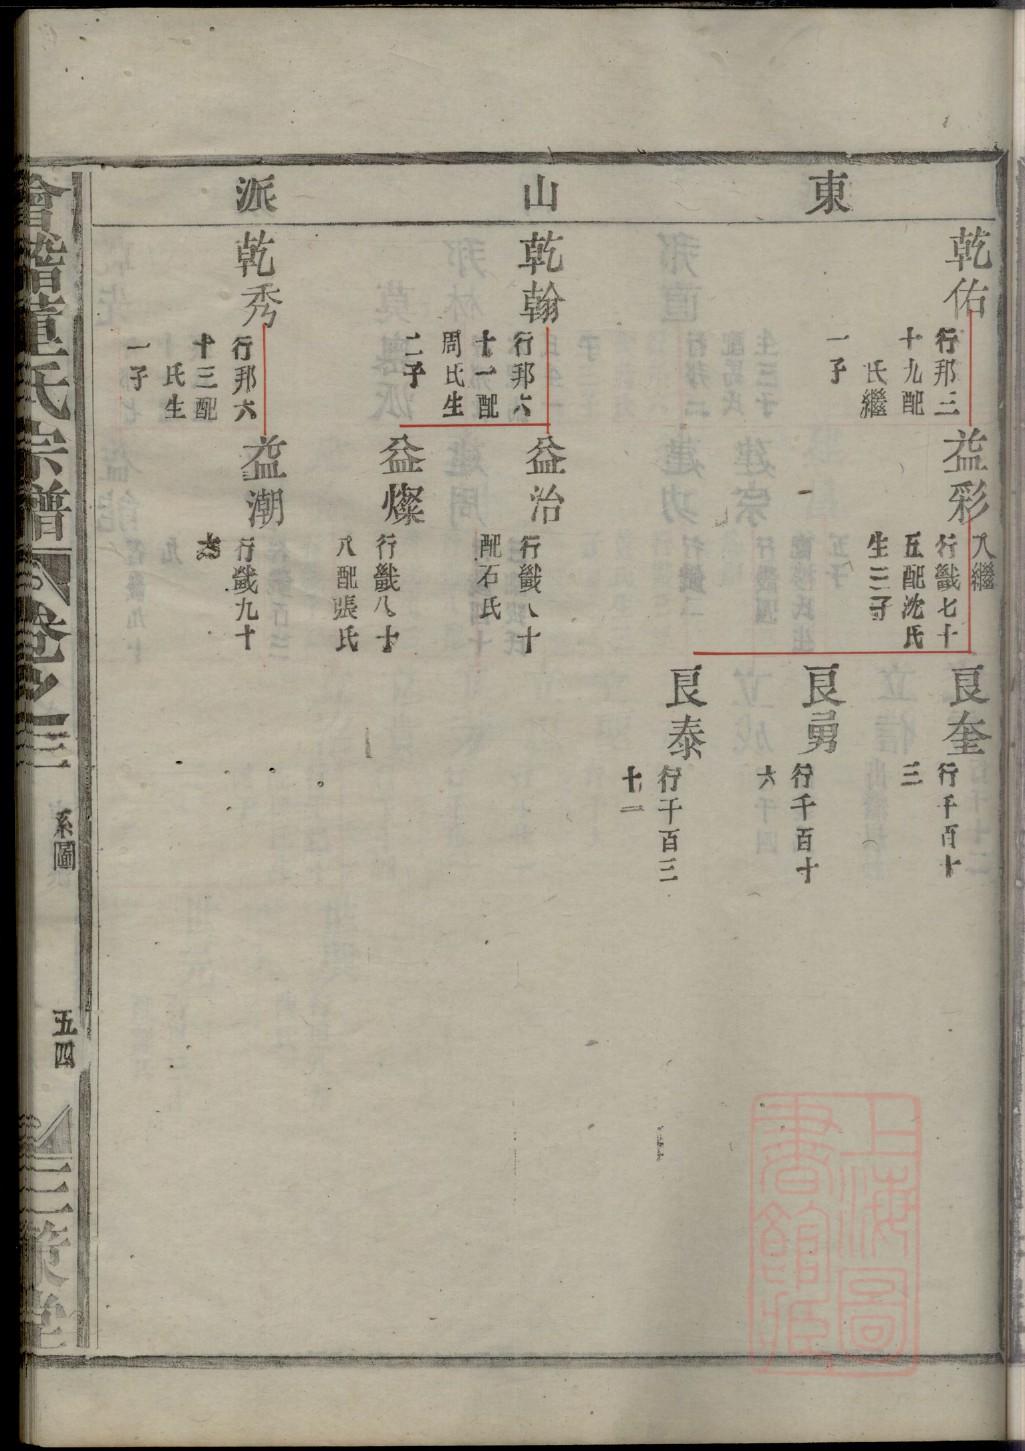 東山派
乾佑
行邦三
十九配
氏繼
一子
益彩
入繼
行籛七十
五配沈氏
生三子
良奎
行千百十
三
良勇
行千百十
六
良泰
行千百三
十一
乾翰
行邦六
十一配
周氏生
二子
益治
行籛八十
配石氏
益燦
行籛八十
八配張氏
乾秀
行邦六
十三配
氏生
一子
益潮
行籛九十
會稽董氏宗譜
卷之三
系圖
五四
三策堂
上海圖書館藏